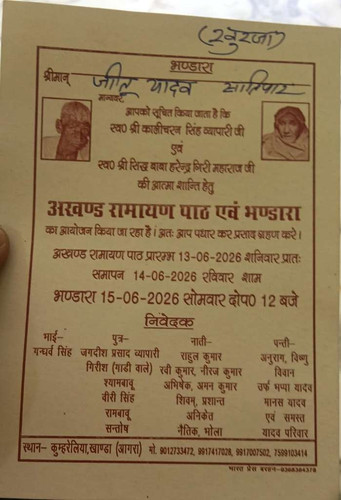 (खुरजा)
भण्डारा
श्रीमान् जीतू यादव सपरिवार
मान्यवर,
आपको सूचित किया जाता है कि
स्व० श्री कालीचरन सिंह व्यापारी जी
एवं
स्व० श्री सिद्ध बाबा हरेन्द्र गिरी महाराज जी
की आत्मा शान्ति हेतु
अखण्ड रामायण पाठ एवं भण्डारा
का आयोजन किया जा रहा है। अतः आप पधार कर प्रसाद ग्रहण करें।
अखण्ड रामायण पाठ प्रारम्भ 13-06-2026 शनिवार प्रातः
समापन 14-06-2026 रविवार शाम
भण्डारा 15-06-2026 सोमवार दोप० 12 बजे
निवेदक
भाई- पुत्र- नाती- पन्ती-
गन्धर्व सिंह जगदीश प्रसाद व्यापारी राहुल कुमार अनुराग, विष्णु
गिरीश (गाडी वाले) रवी कुमार, नीरज कुमार विवान
श्यामबाबू अभिषेक, अमन कुमार उर्फ भप्पा यादव
वीरी सिंह शिवम्, प्रशान्त मानस यादव
रामबाबू अनिकेत एवं समस्त
सन्तोष नैतिक, भोला यादव परिवार
स्थान- कुम्हरेलिया, खाण्डा (आगरा) मो. 9012733472, 9917417028, 9917007502, 7599103414
भारत प्रेस बरहन-9368384378